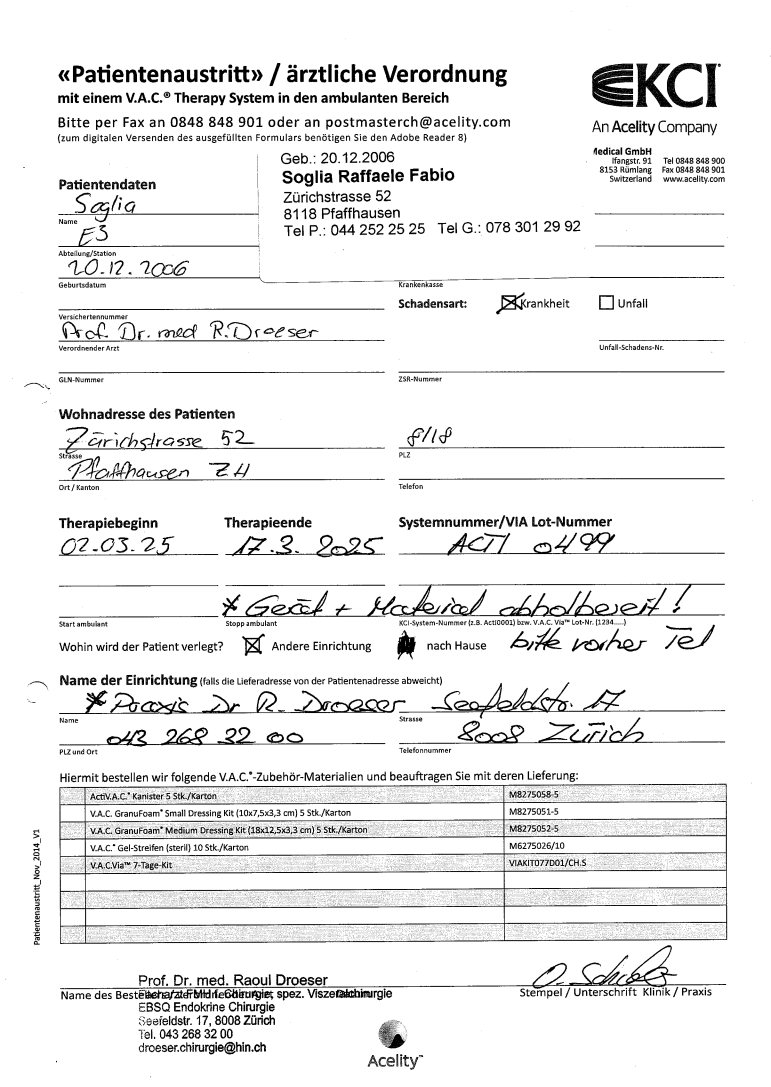 «Patientenaustritt» / ärztliche Verordnung
mit einem V.A.C.® Therapy System in den ambulanten Bereich
Bitte per Fax an 0848 848 901 oder an postmasterch@acelity.com
(zum digitalen Versenden des ausgefüllten Formulars benötigen Sie den Adobe Reader 8)
KCI
An Acelity Company
Medical GmbH
Ifangstr. 91 Tel 0848 848 900
8153 Rümlang Fax 0848 848 901
Switzerland www.acelity.com
Geb.: 20.12.2006
Soglia Raffaele Fabio
Zürichstrasse 52
8118 Pfaffhausen
Tel P.: 044 252 25 25 Tel G.: 078 301 29 92
Patientendaten
Soglia
Name
E3
Abteilung/Station
20.12.2006
Geburtsdatum
Krankenkasse
Schadensart: Krankheit Unfall
Versichertennummer
Prof. Dr. med R. Droeser
Verordnender Arzt
Unfall-Schadens-Nr.
GLN-Nummer
ZSR-Nummer
Wohnadresse des Patienten
Zürichstrasse 52 8118
Strasse PLZ
Pfaffhausen ZH
Ort / Kanton Telefon
Therapiebeginn Therapieende Systemnummer/VIA Lot-Nummer
02.03.25 17.3.2025 ACTI 0499
* Gerät + Material abholbereit!
Start ambulant Stopp ambulant KCI-System-Nummer (z.B. Acti0001) bzw. V.A.C. Via™ Lot-Nr. (1234.....)
Wohin wird der Patient verlegt? Andere Einrichtung nach Hause bitte vorher Tel
Name der Einrichtung (falls die Lieferadresse von der Patientenadresse abweicht)
* Praxis Dr R. Droeser Seefeldstr. 17
Name Strasse
043 268 32 00 8008 Zürich
PLZ und Ort Telefonnummer
Hiermit bestellen wir folgende V.A.C.®-Zubehör-Materialien und beauftragen Sie mit deren Lieferung:
ActiV.A.C.® Kanister 5 Stk./Karton M8275058-5
V.A.C. GranuFoam® Small Dressing Kit (10x7,5x3,3 cm) 5 Stk./Karton M8275051-5
V.A.C. GranuFoam® Medium Dressing Kit (18x12,5x3,3 cm) 5 Stk./Karton M8275052-5
V.A.C.® Gel-Streifen (steril) 10 Stk./Karton M6275026/10
V.A.C.Via™ 7-Tage-Kit VIAKIT077D01/CH.S
Patientenaustritt_Nov_2014_V1
Prof. Dr. med. Raoul Droeser
Name des Facharzt FMH f. Chirurgie, spez. Viszeralchirurgie
Stempel / Unterschrift Klinik / Praxis
EBSQ Endokrine Chirurgie
Seefeldstr. 17, 8008 Zürich
Tel. 043 268 32 00
droeser.chirurgie@hin.ch
Acelity™